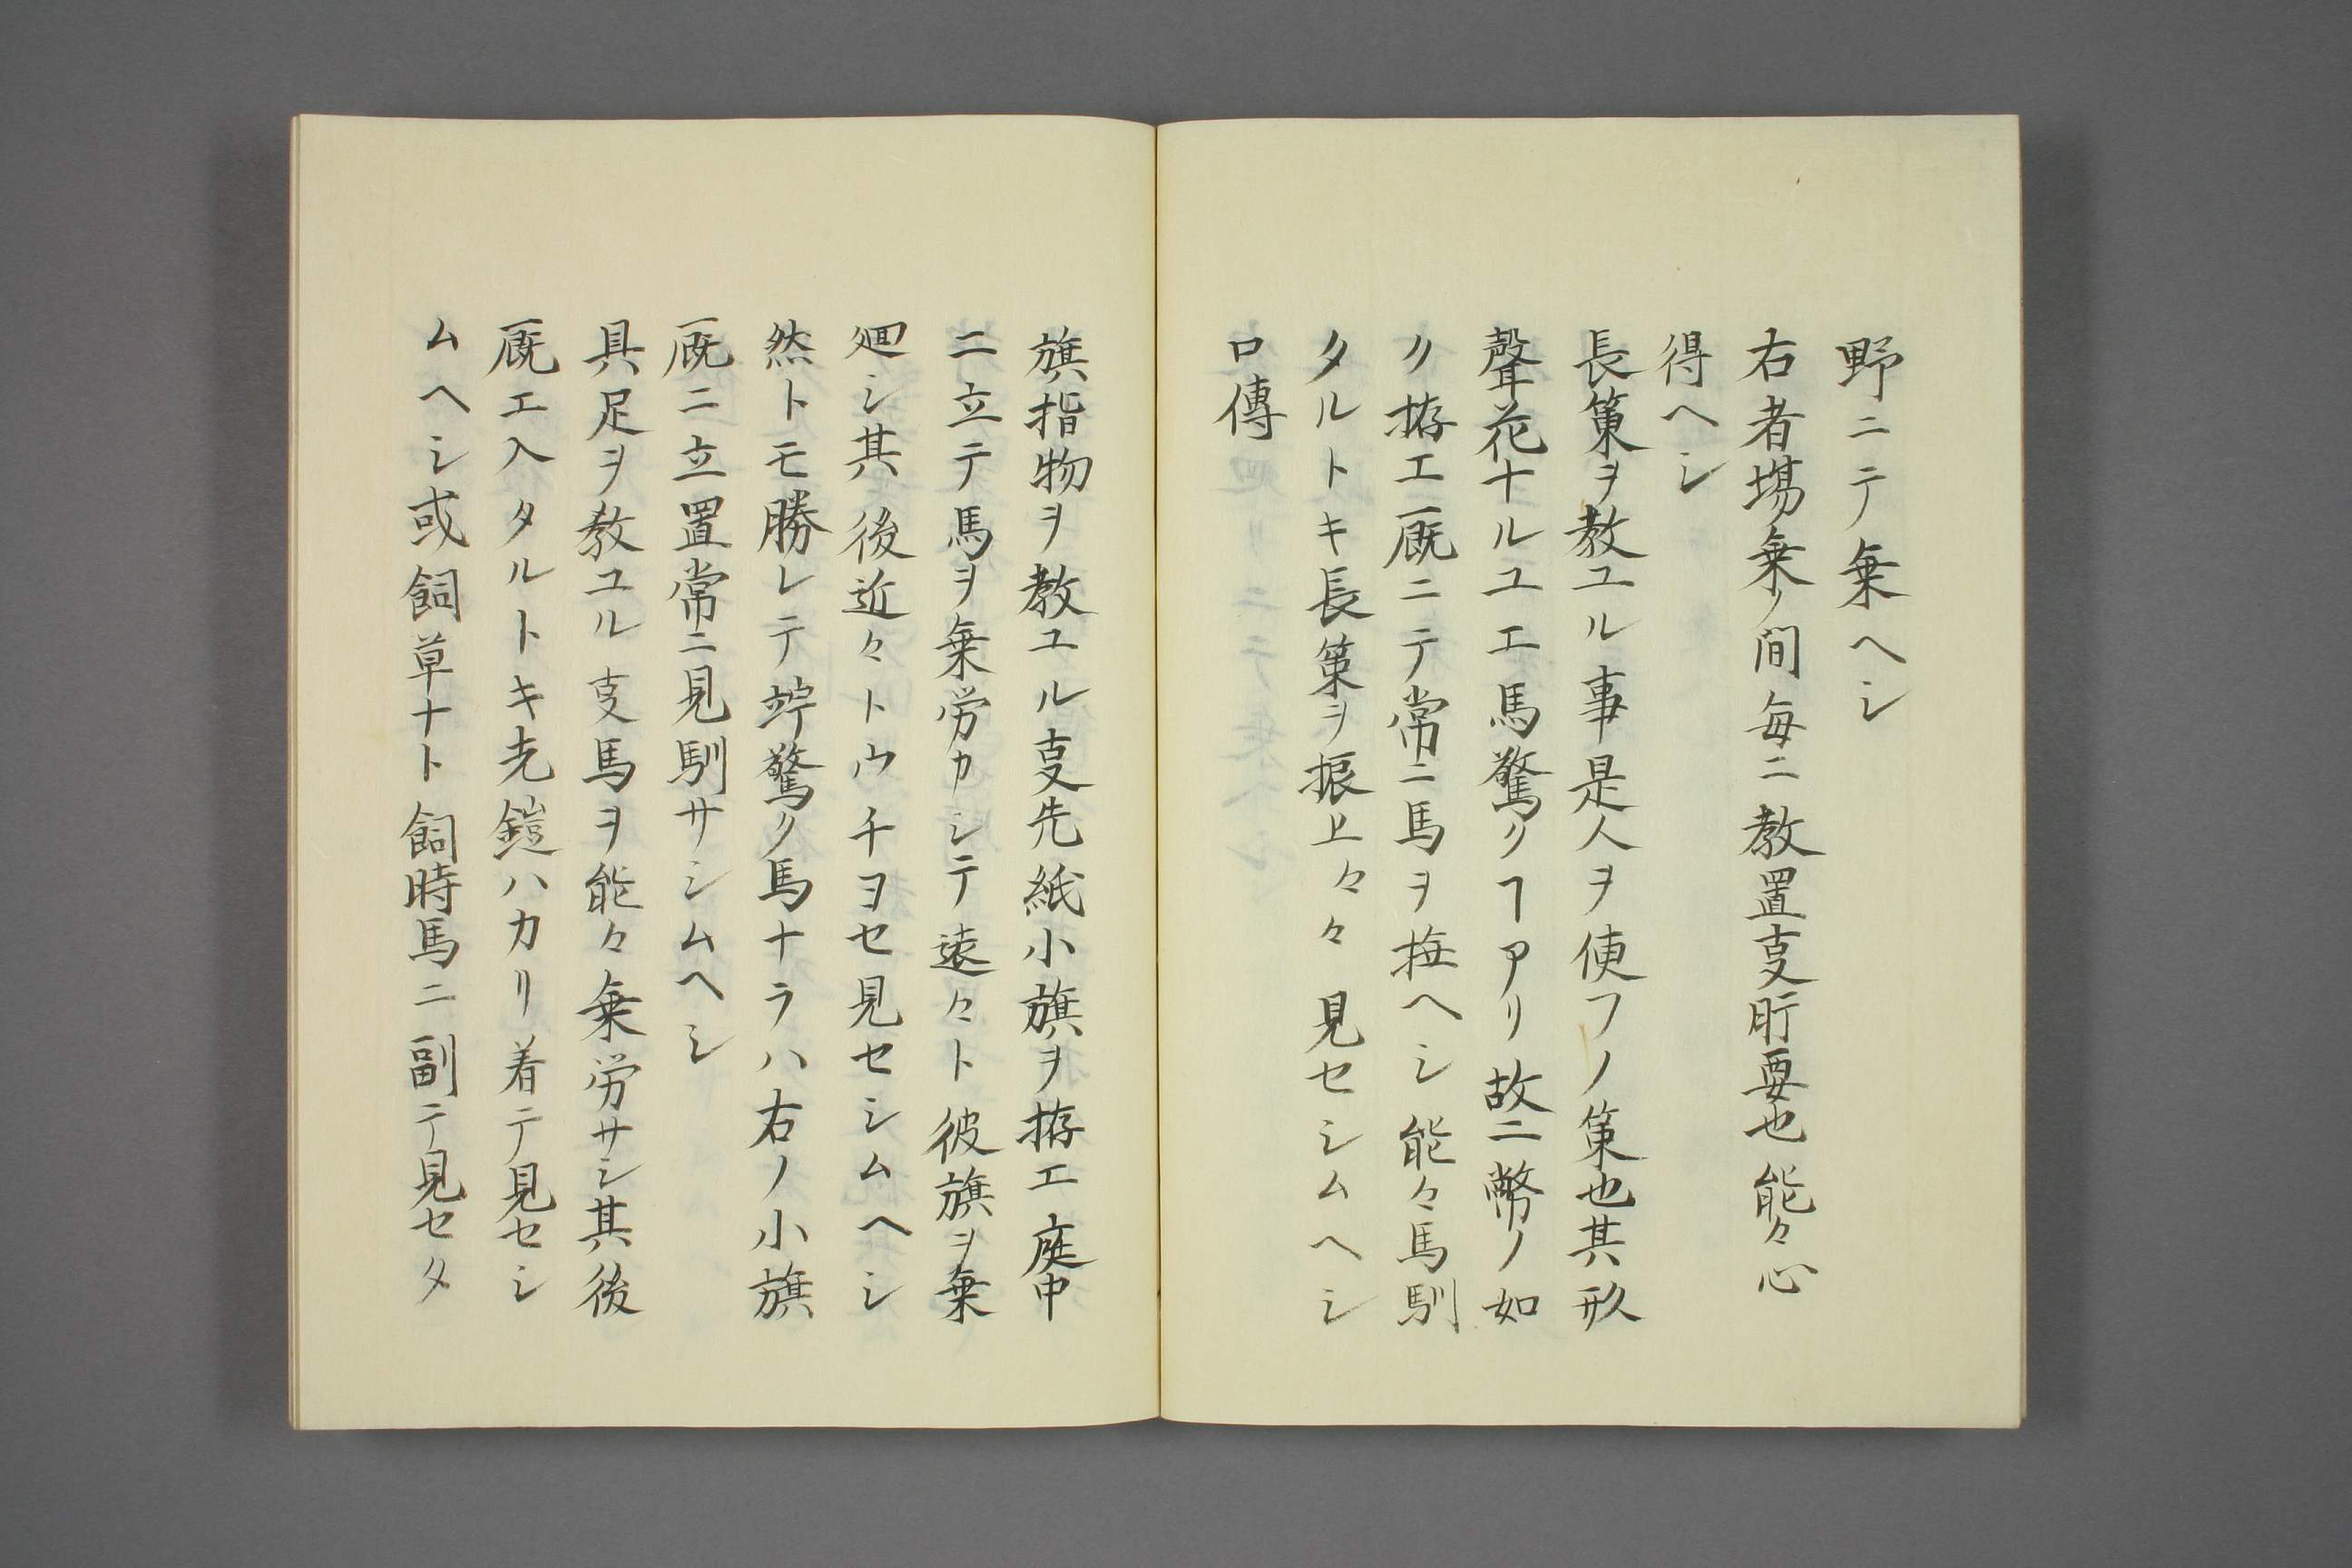 野ニテ乗ヘシ
右者場乗ノ間毎ニ教置叓肝要也能々心
得ヘシ
長策ヲ教ユル事是人ヲ使フノ策也其形
聲花ナルユエ馬驚クヿアリ故ニ幣ノ如
ク拵エ厩ニテ常ニ馬ヲ撫ヘシ能々馬馴
タルトキ長策ヲ振上々々見セシムヘシ
口傳
旗指物ヲ教ユル叓先紙小旗ヲ拵エ庭中
ニ立テ馬ヲ乗労カシテ遠々ト彼旗ヲ乗
廻シ其後近々トウチヨセ見セシムヘシ
然トモ勝レテ驚ク馬ナラハ右ノ小旗
厩ニ立置常ニ見馴サシムヘシ
具足ヲ教ユル叓馬ヲ能々乗労サシ其後
厩エ入タルトキ先鎧ハカリ着テ見セシ
ムヘシ或飼草ナト飼時馬ニ副テ見セタ